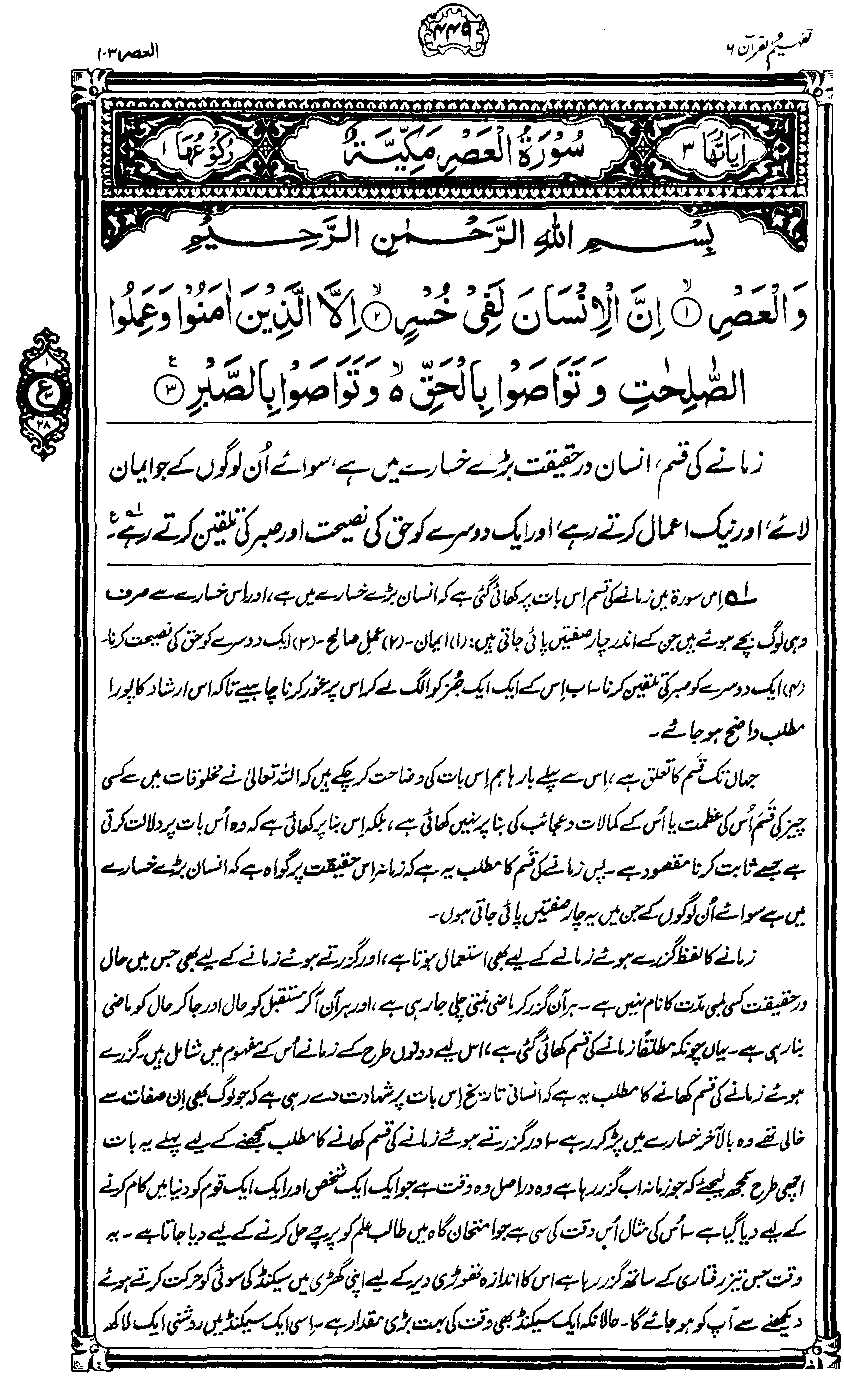 تفہیم القرآن ۶
۴۴۹
العصر ۱۰۳
اٰيَاتُهَا ۳
سُوْرَةُ الْعَصْرِ مَكِّيَّةٌ
رُكُوْعُهَا ۱
بِسْمِ اللهِ الرَّحْمٰنِ الرَّحِيْمِ
وَالْعَصْرِ ۙ﴿۱﴾ اِنَّ الْاِنْسَانَ لَفِيْ خُسْرٍ ۙ﴿۲﴾ اِلَّا الَّذِيْنَ اٰمَنُوْا وَعَمِلُوا
الصّٰلِحٰتِ وَتَوَاصَوْا بِالْحَقِّ ۙ۬ وَتَوَاصَوْا بِالصَّبْرِ ﴿۳﴾ ع
۱
ع
۲۸
زمانے کی قسم، انسان درحقیقت بڑے خسارے میں ہے، سوائے اُن لوگوں کے جو ایمان
لائے، اور نیک اعمال کرتے رہے، اور ایک دوسرے کو حق کی نصیحت اور صبر کی تلقین کرتے رہے۔ ۱ ع
۱ اِس سورۃ میں زمانے کی قسم اِس بات پر کھائی گئی ہے کہ انسان بڑے خسارے میں ہے، اور اِس خسارے سے صرف
وہی لوگ بچے ہوئے ہیں جن کے اندر چار صفتیں پائی جاتی ہیں: (۱) ایمان۔ (۲) عمل صالح۔ (۳) ایک دوسرے کو حق کی نصیحت کرنا۔
(۴) ایک دوسرے کو صبر کی تلقین کرنا۔ اب اِس کے ایک ایک جُز کو الگ لے کر اس پر غور کرنا چاہیے تاکہ اس ارشاد کا پورا
مطلب واضح ہو جائے۔
جہاں تک قَسم کا تعلق ہے، اِس سے پہلے بارہا ہم اِس بات کی وضاحت کر چکے ہیں کہ اللہ تعالیٰ نے مخلوقات میں سے کسی
چیز کی قَسم اُس کی عظمت یا اُس کے کمالات و عجائب کی بنا پر نہیں کھائی ہے، بلکہ اِس بنا پر کھائی ہے کہ وہ اُس بات پر دلالت کرتی
ہے جسے ثابت کرنا مقصود ہے۔ پس زمانے کی قَسم کا مطلب یہ ہے کہ زمانہ اِس حقیقت پر گواہ ہے کہ انسان بڑے خسارے
میں ہے سوائے اُن لوگوں کے جن میں یہ چار صفتیں پائی جاتی ہوں۔
زمانے کا لفظ گزرے ہوئے زمانے کے لیے بھی استعمال ہوتا ہے، اور گزرتے ہوئے زمانے کے لیے بھی جس میں حال
درحقیقت کسی لمبی مدّت کا نام نہیں ہے۔ ہر آن گزر کر ماضی بنتی چلی جا رہی ہے، اور ہر آن آکر مستقبل کو حال اور جا کر حال کو ماضی
بنا رہی ہے۔ یہاں چونکہ مطلقاً زمانے کی قسم کھائی گئی ہے، اس لیے دونوں طرح کے زمانے اُس کے مفہوم میں شامل ہیں۔ گزرے
ہوئے زمانے کی قسم کھانے کا مطلب یہ ہے کہ انسانی تاریخ اِس بات پر شہادت دے رہی ہے کہ جو لوگ بھی اِن صفات سے
خالی تھے وہ بالآخر خسارے میں پڑ کر رہے۔ اور گزرتے ہوئے زمانے کی قسم کھانے کا مطلب سمجھنے کے لیے پہلے یہ بات
اچھی طرح سمجھ لیجیے کہ جو زمانہ اب گزر رہا ہے وہ دراصل وہ وقت ہے جو ایک ایک شخص اور ایک ایک قوم کو دنیا میں کام کرنے
کے لیے دیا گیا ہے۔ اُس کی مثال اُس وقت کی سی ہے جو امتحان گاہ میں طالب علم کو پرچے حل کرنے کے لیے دیا جاتا ہے۔ یہ
وقت جس تیز رفتاری کے ساتھ گزر رہا ہے اس کا اندازہ تھوڑی دیر کے لیے اپنی گھڑی میں سیکنڈ کی سوئی کو حرکت کرتے ہوئے
دیکھنے سے آپ کو ہو جائے گا۔ حالانکہ ایک سیکنڈ بھی وقت کی بہت بڑی مقدار ہے۔ اِسی ایک سیکنڈ میں روشنی ایک لاکھ